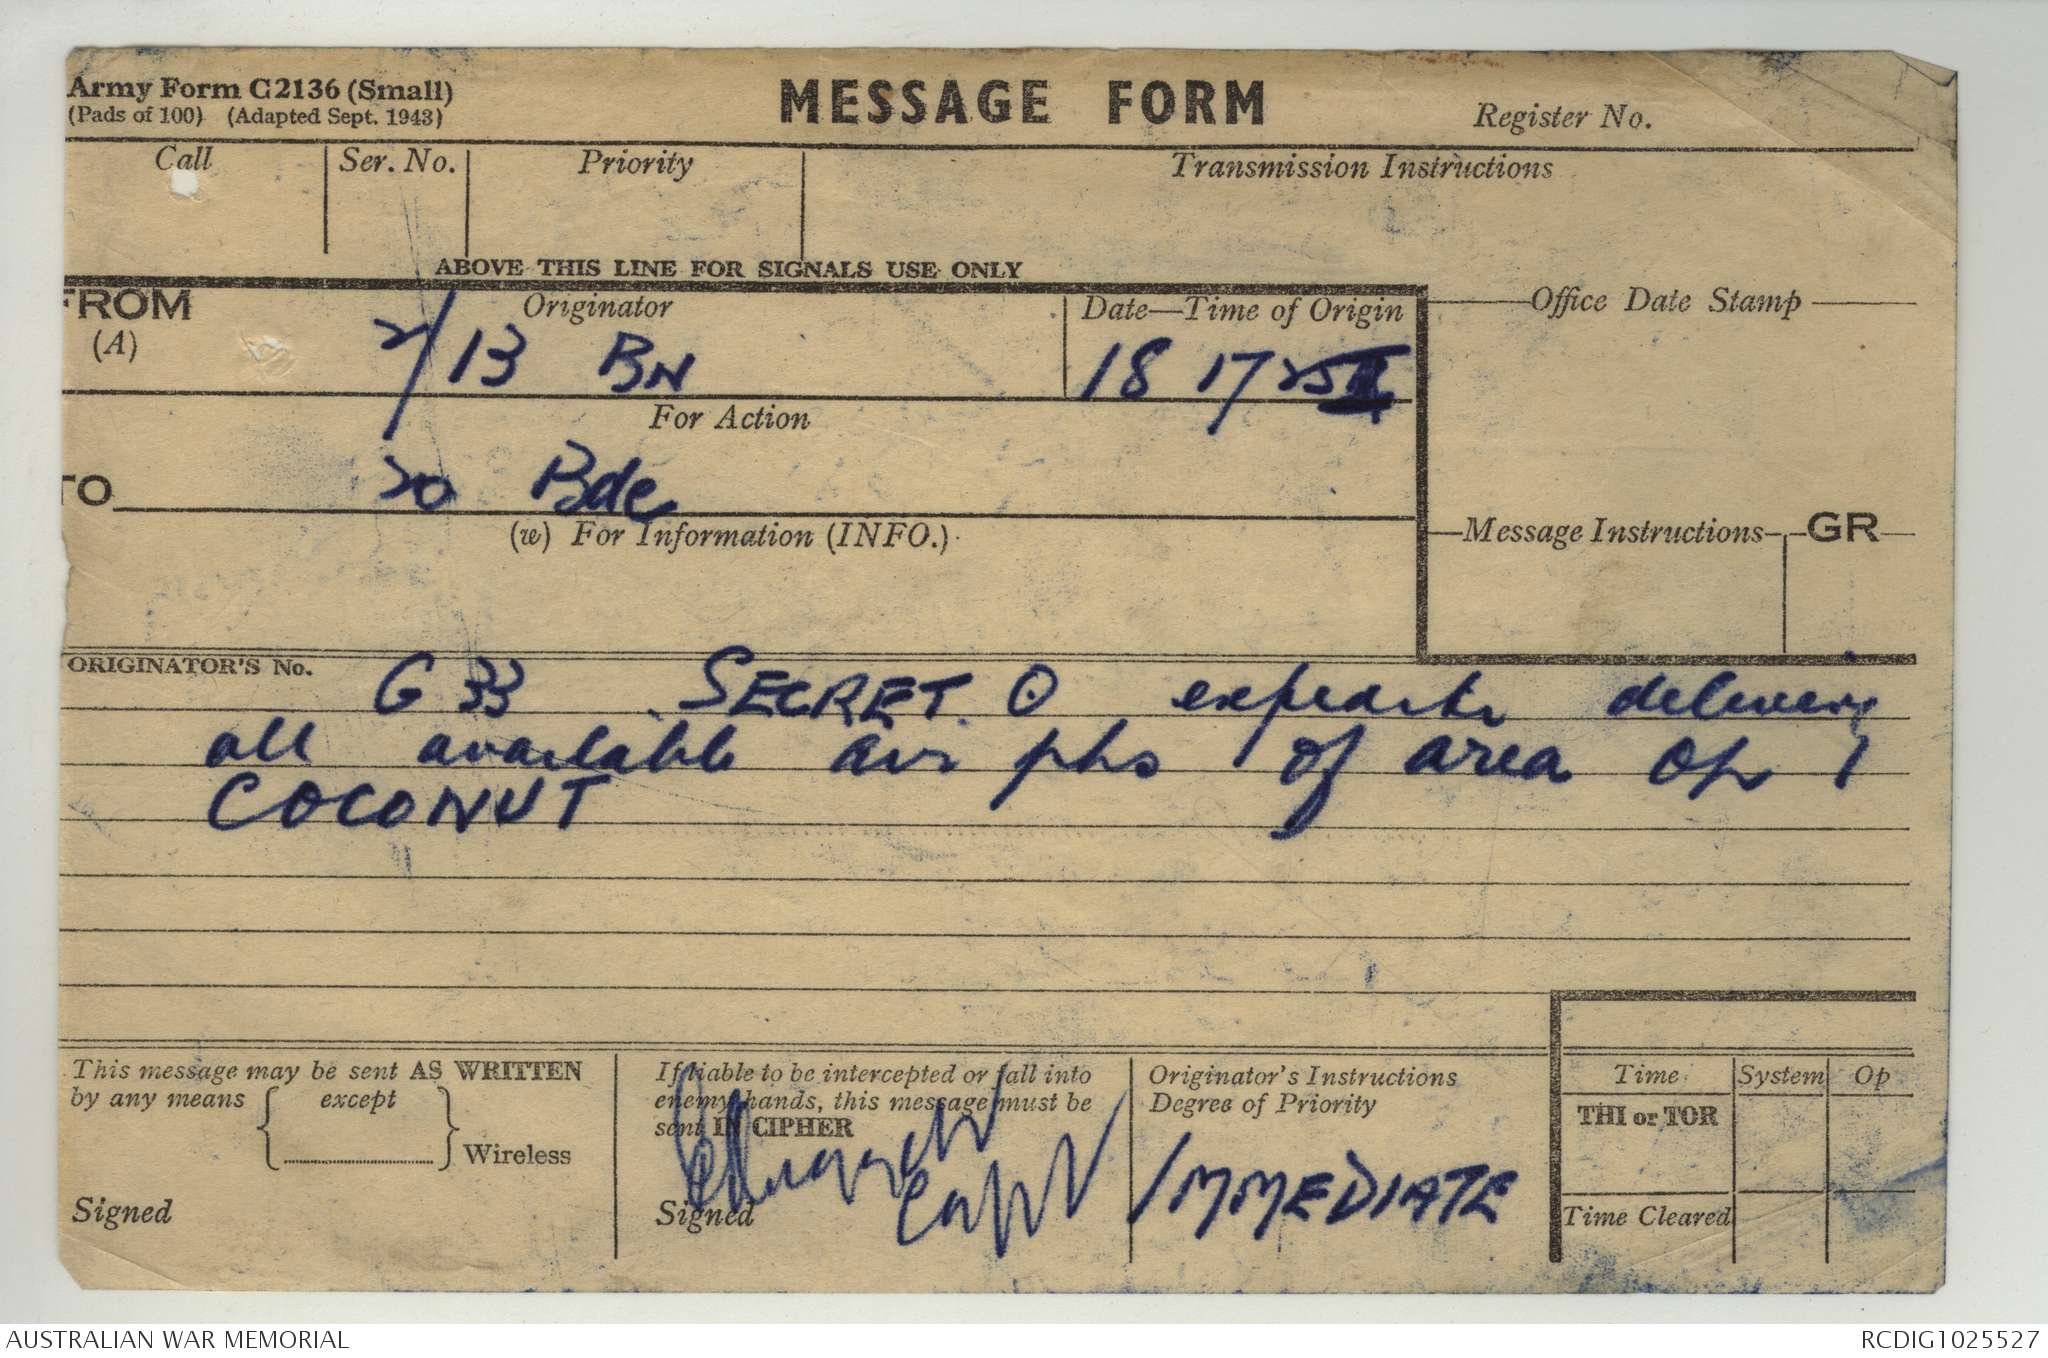 Army Form C2136 (Small)
(Pads of 100) (Adapted Sept. 1943)
MESSAGE FORM
Register No.
Call
Ser. No.
Priority
Transmission Instructions
ABOVE THIS LINE FOR SIGNALS USE ONLY
FROM
(A)
Originator
2/13 BN
Date—Time of Origin
18 1725
Office Date Stamp
For Action
TO
20 Bde
(w) For Information (INFO.)
Message Instructions
GR
ORIGINATOR'S No.
G 33 SECRET. O expedite delivery
all available air phs of area op 1
COCONUT
This message may be sent AS WRITTEN
by any means { except } Wireless
Signed
If liable to be intercepted or fall into
enemy hands, this message must be
sent IN CIPHER
Signed
Capt
Originator's Instructions
Degree of Priority
IMMEDIATE
Time
System
Op
THI or TOR
Time Cleared
AUSTRALIAN WAR MEMORIAL
RCDIG1025527